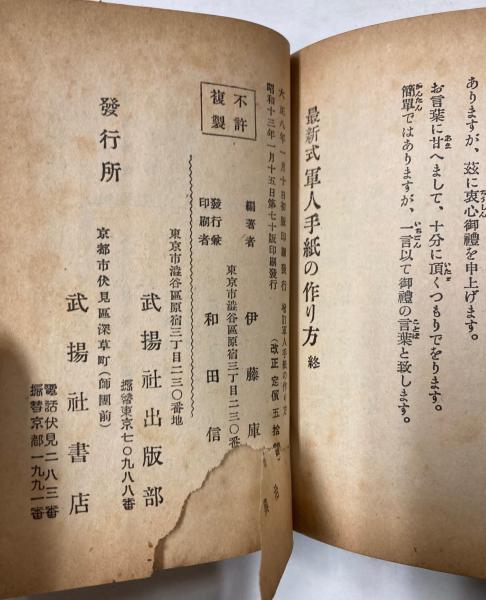 ありますが、茲に衷心御禮を申上げます。
お言葉に甘へまして、十分に頂くつもりでをります。
簡單ではありますが、一言以て御禮の言葉と致します。
最新式 軍人手紙の作り方 終
大正八年一月十日初版印刷發行
昭和十三年一月十五日第七十版印刷發行
增訂軍人手紙の作り方
(改正定價五拾
不許
複製
編著者 伊藤庫
東京市澁谷區原宿三丁目二三〇番
發行兼
印刷者 和田信
東京市澁谷區原宿三丁目二三〇番地
武揚社出版部
振替東京七〇九八八番
發行所
京都市伏見區深草町(師團前)
武揚社書店
電話伏見二八三番
振替京都一九九一番